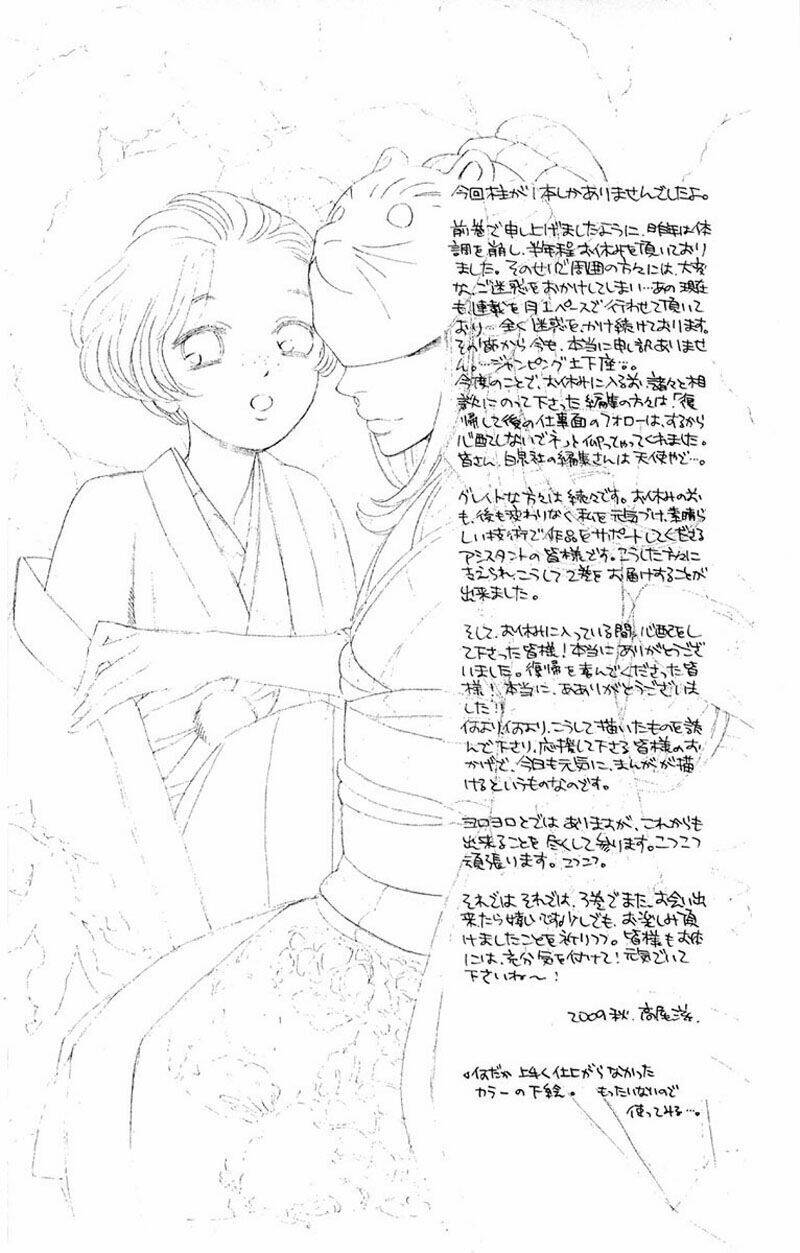 今回柱が1本しかありませんでしたよ。
前巻で申し上げましたように、昨年は体
調を崩し、半年程お休みを頂いており
ました。そのせいで周囲の方々には、大変
な、ご迷惑をおかけしてしまい…あの現在
も、連載を月イチペースで行わせて頂いて
おり…全く迷惑をかけ続けております。
その節から今も、本当に申し訳ありませ
ん。…ジャンピング土下座。
今度のことで、お休みに入る前、諸々と相
談にのって下さった編集の方々は「復
帰して後の仕事面のフォローは、するから
心配しないでネ」と仰ってくれました。
皆さん、白泉社の編集さんは天使やど…。
グレイトな方々は続々です。お休みの前
も、後も変わりなく私を元気づけ、素晴ら
しい技術で作品をサポートしてくださる
アシスタントの皆様です。こうした方々に
支えられ、こうして2巻をお届けすることが
出来ました。
そして、お休みに入っている間、心配をし
て下さった皆様！本当にありがとうござ
いました。復帰を喜んでくださった皆
様！本当に、ああありがとうございま
した!!
何より何より、こうして描いたものを読
んで下さり、応援して下さる皆様のお
かげで、今日も元気に、まんがが描
けるというものなのです。
ヨロヨロとではありますが、これからも
出来ることを尽くして参ります。こつこつ
頑張ります。こつこつ。
それではそれでは、3巻でまた、お会い出
来たら嬉しいですな少しでも、お楽しみ頂
けましたことを祈りつつ。皆様もお体
には、充分気を付けて！元気でいて
下さいね〜！
2009秋、高尾滋。
何だか上手く仕上がらなかった
カラーの下絵。もったいないので
使ってみる…。